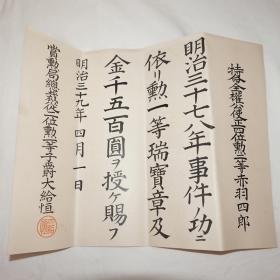 特命全權公使正四位勲二等赤羽四郎
明治三十七八年事件ノ功ニ
依リ勲一等瑞寶章及
金千五百圓ヲ授ケ賜フ
明治三十九年四月一日
賞勲局總裁從二位勲一等子爵大給恒